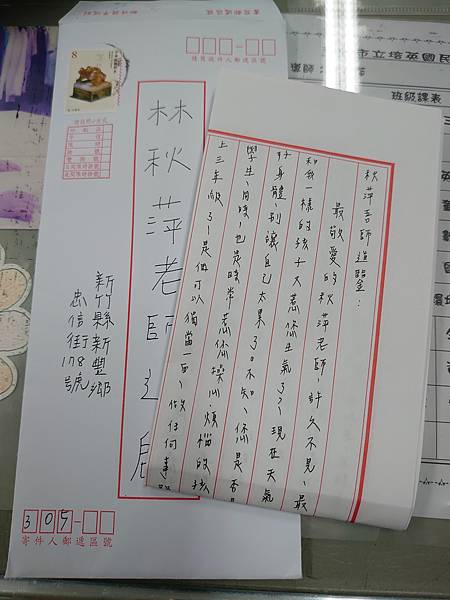 8
請寫收件人郵遞區號
林秋萍老師道啟
新竹縣新豐鄉
忠信街178號
305-
寄件人郵遞區號
秋萍吾師道鑒：
最敬愛的秋萍老師、許久不見、最
和我一樣的孩子太惹您生氣了、現在天氣
好身體、別讓自己太累了。不知、您是否
學生、同時、也是時常惹您操心、煩惱的孩
上三年級了、是個可以獨當一面、做任何事
市立培英國民
班級課表